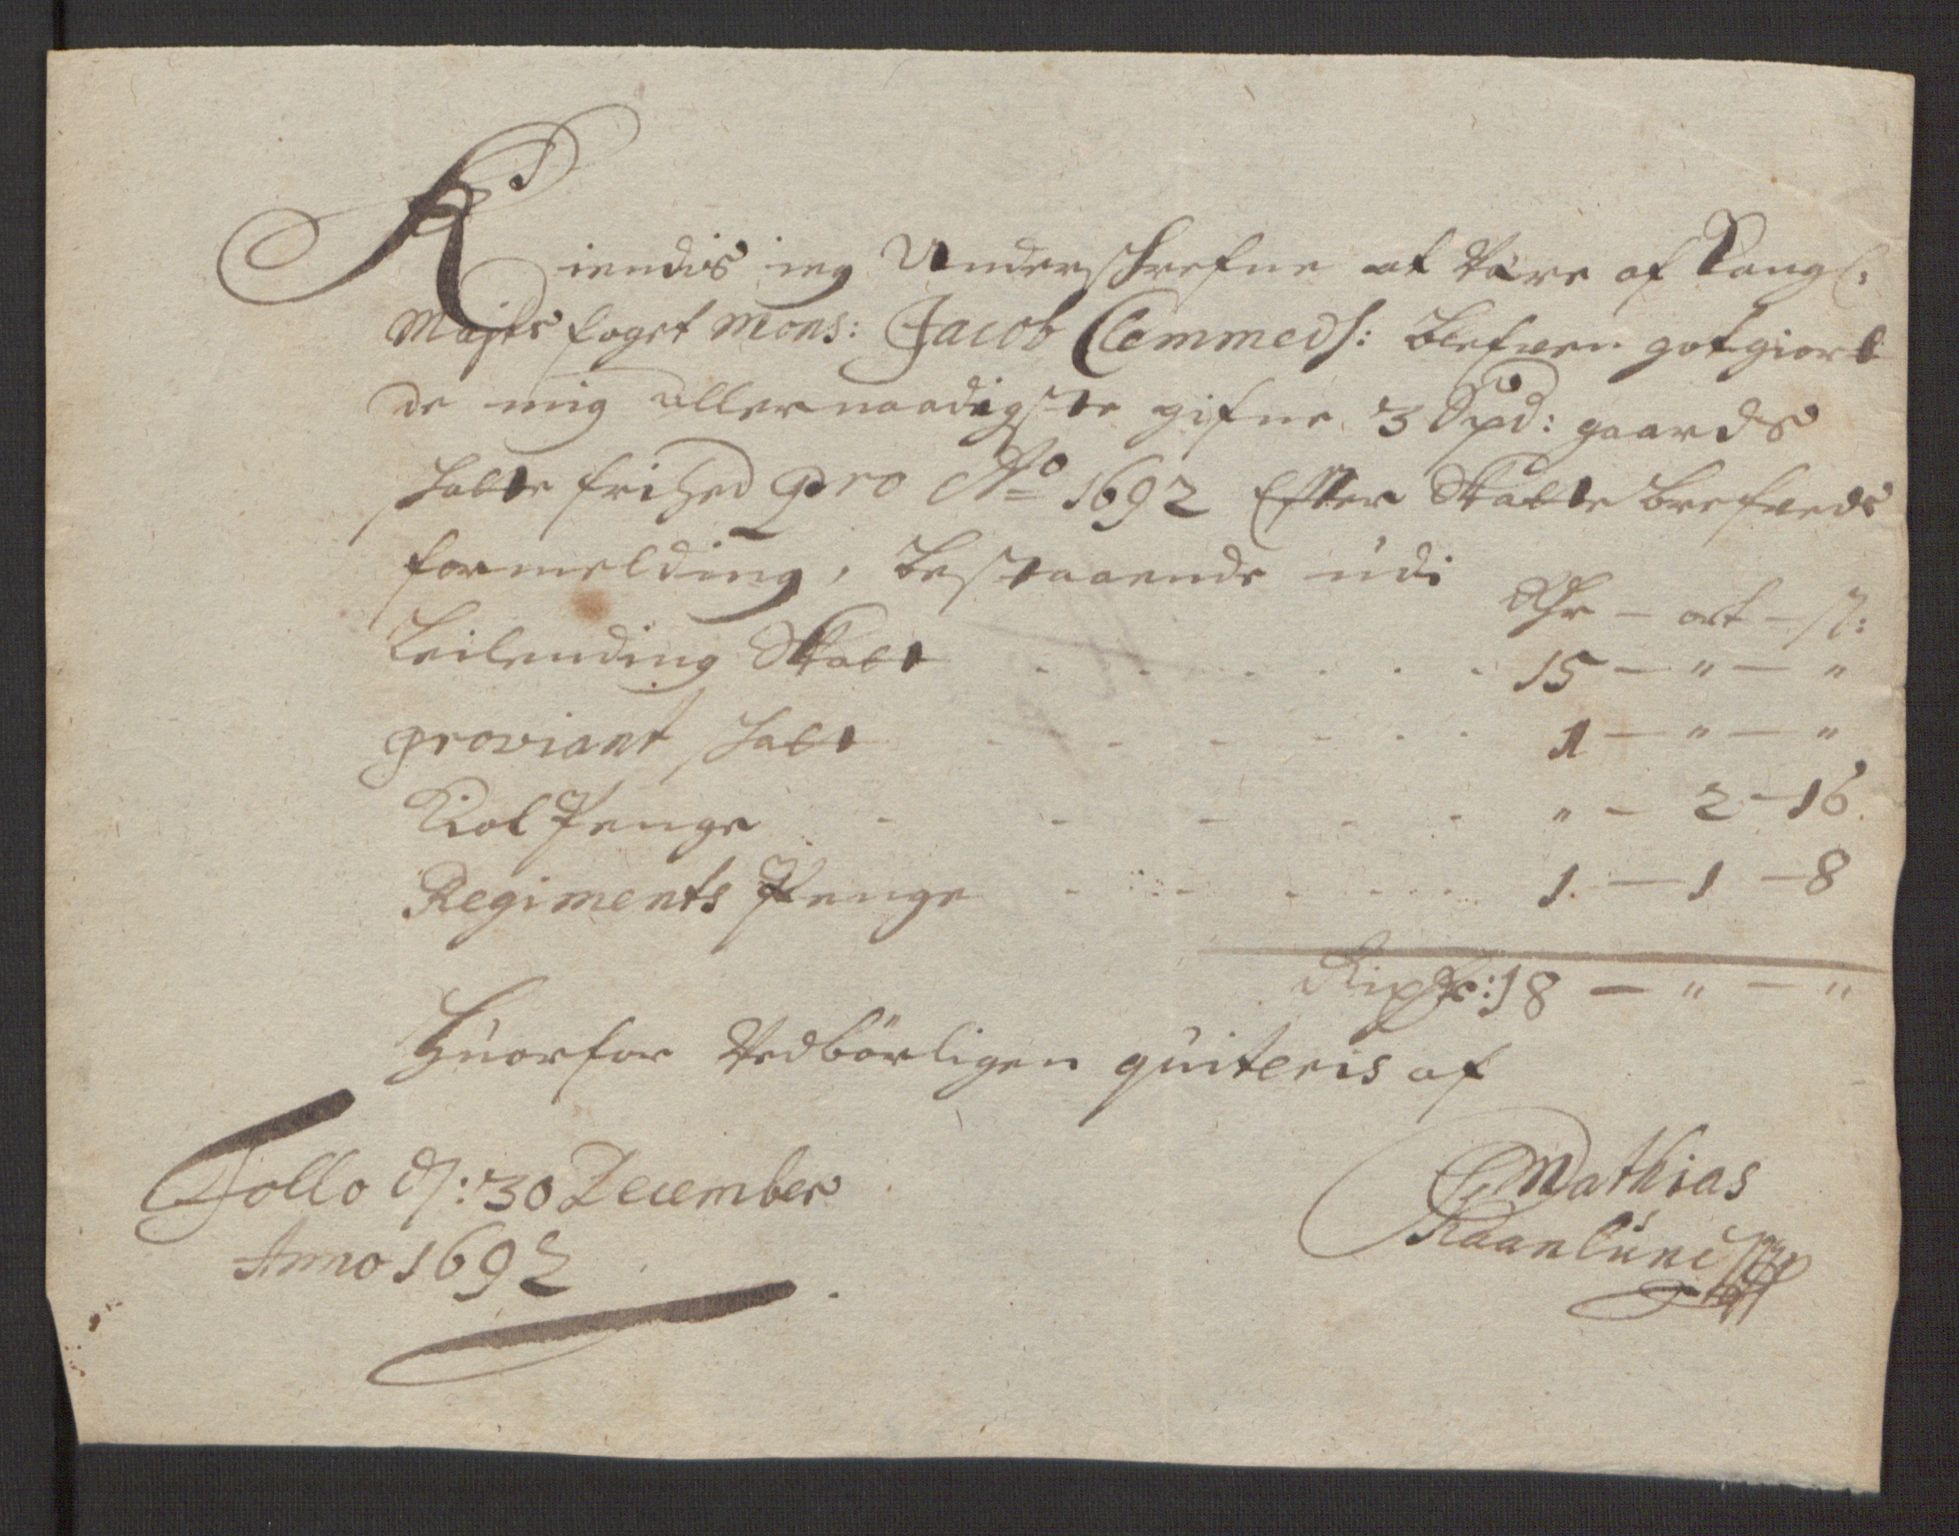 Kiendis ieg Underschrefne at Være af Kongl:
Maysts foget Mons: Jacob Clemmeds: blefven gotgiort
de mig allernaadigste gifne 3 Spd: gaards
schatte frihed pro Ao 1692 Efter Skatte brefveds
formelding, bestaaende udi
Rdr - ort - s:
Leilending Skatt . . . . . . 15 - " - "
proviant schatt . . . . . . 1 - " - "
Kol Penge - - - - - " - 2 - 16
Regiments Penge - - - - - 1 - 1 - 8
18 - " - "
Huorfor Vedbörligen quiteris af
Follo ds: 30 December
Anno 1692
Mathias